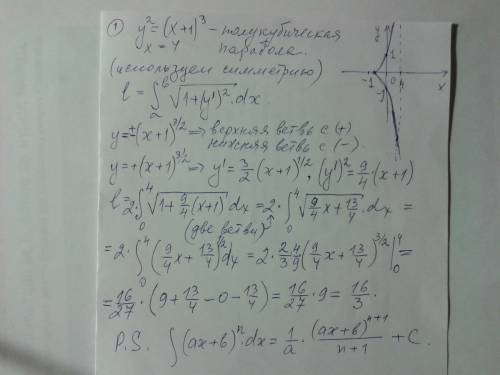 ① y² = (x+1)³ – полукубическая
x = 4 парабола.
(используем симметрию)
l = ∫_a^b √(1+(y')²) dx.
y = ±(x+1)^(3/2) ⟹ верхняя ветвь с (+)
нижняя ветвь с (–).
y = +(x+1)^(3/2) ⟹ y' = 3/2 (x+1)^(1/2), (y')² = 9/4 · (x+1)
l = 2·∫_0^4 √(1+9/4(x+1)) dx = 2·∫_0^4 √(9/4 x + 13/4) · dx =
(две ветви)
= 2·∫_0^4 (9/4 x + 13/4)^(1/2) dx = 2·2/3·4/9 (9/4 x + 13/4)^(3/2) |_0^4 =
= 16/27 · (9 + 13/4 – 0 – 13/4) = 16/27 · 9 = 16/3.
P.S. ∫(ax+b)^n · dx = 1/a · (ax+b)^(n+1)/(n+1) + C.
y
1
-1 0 4 x